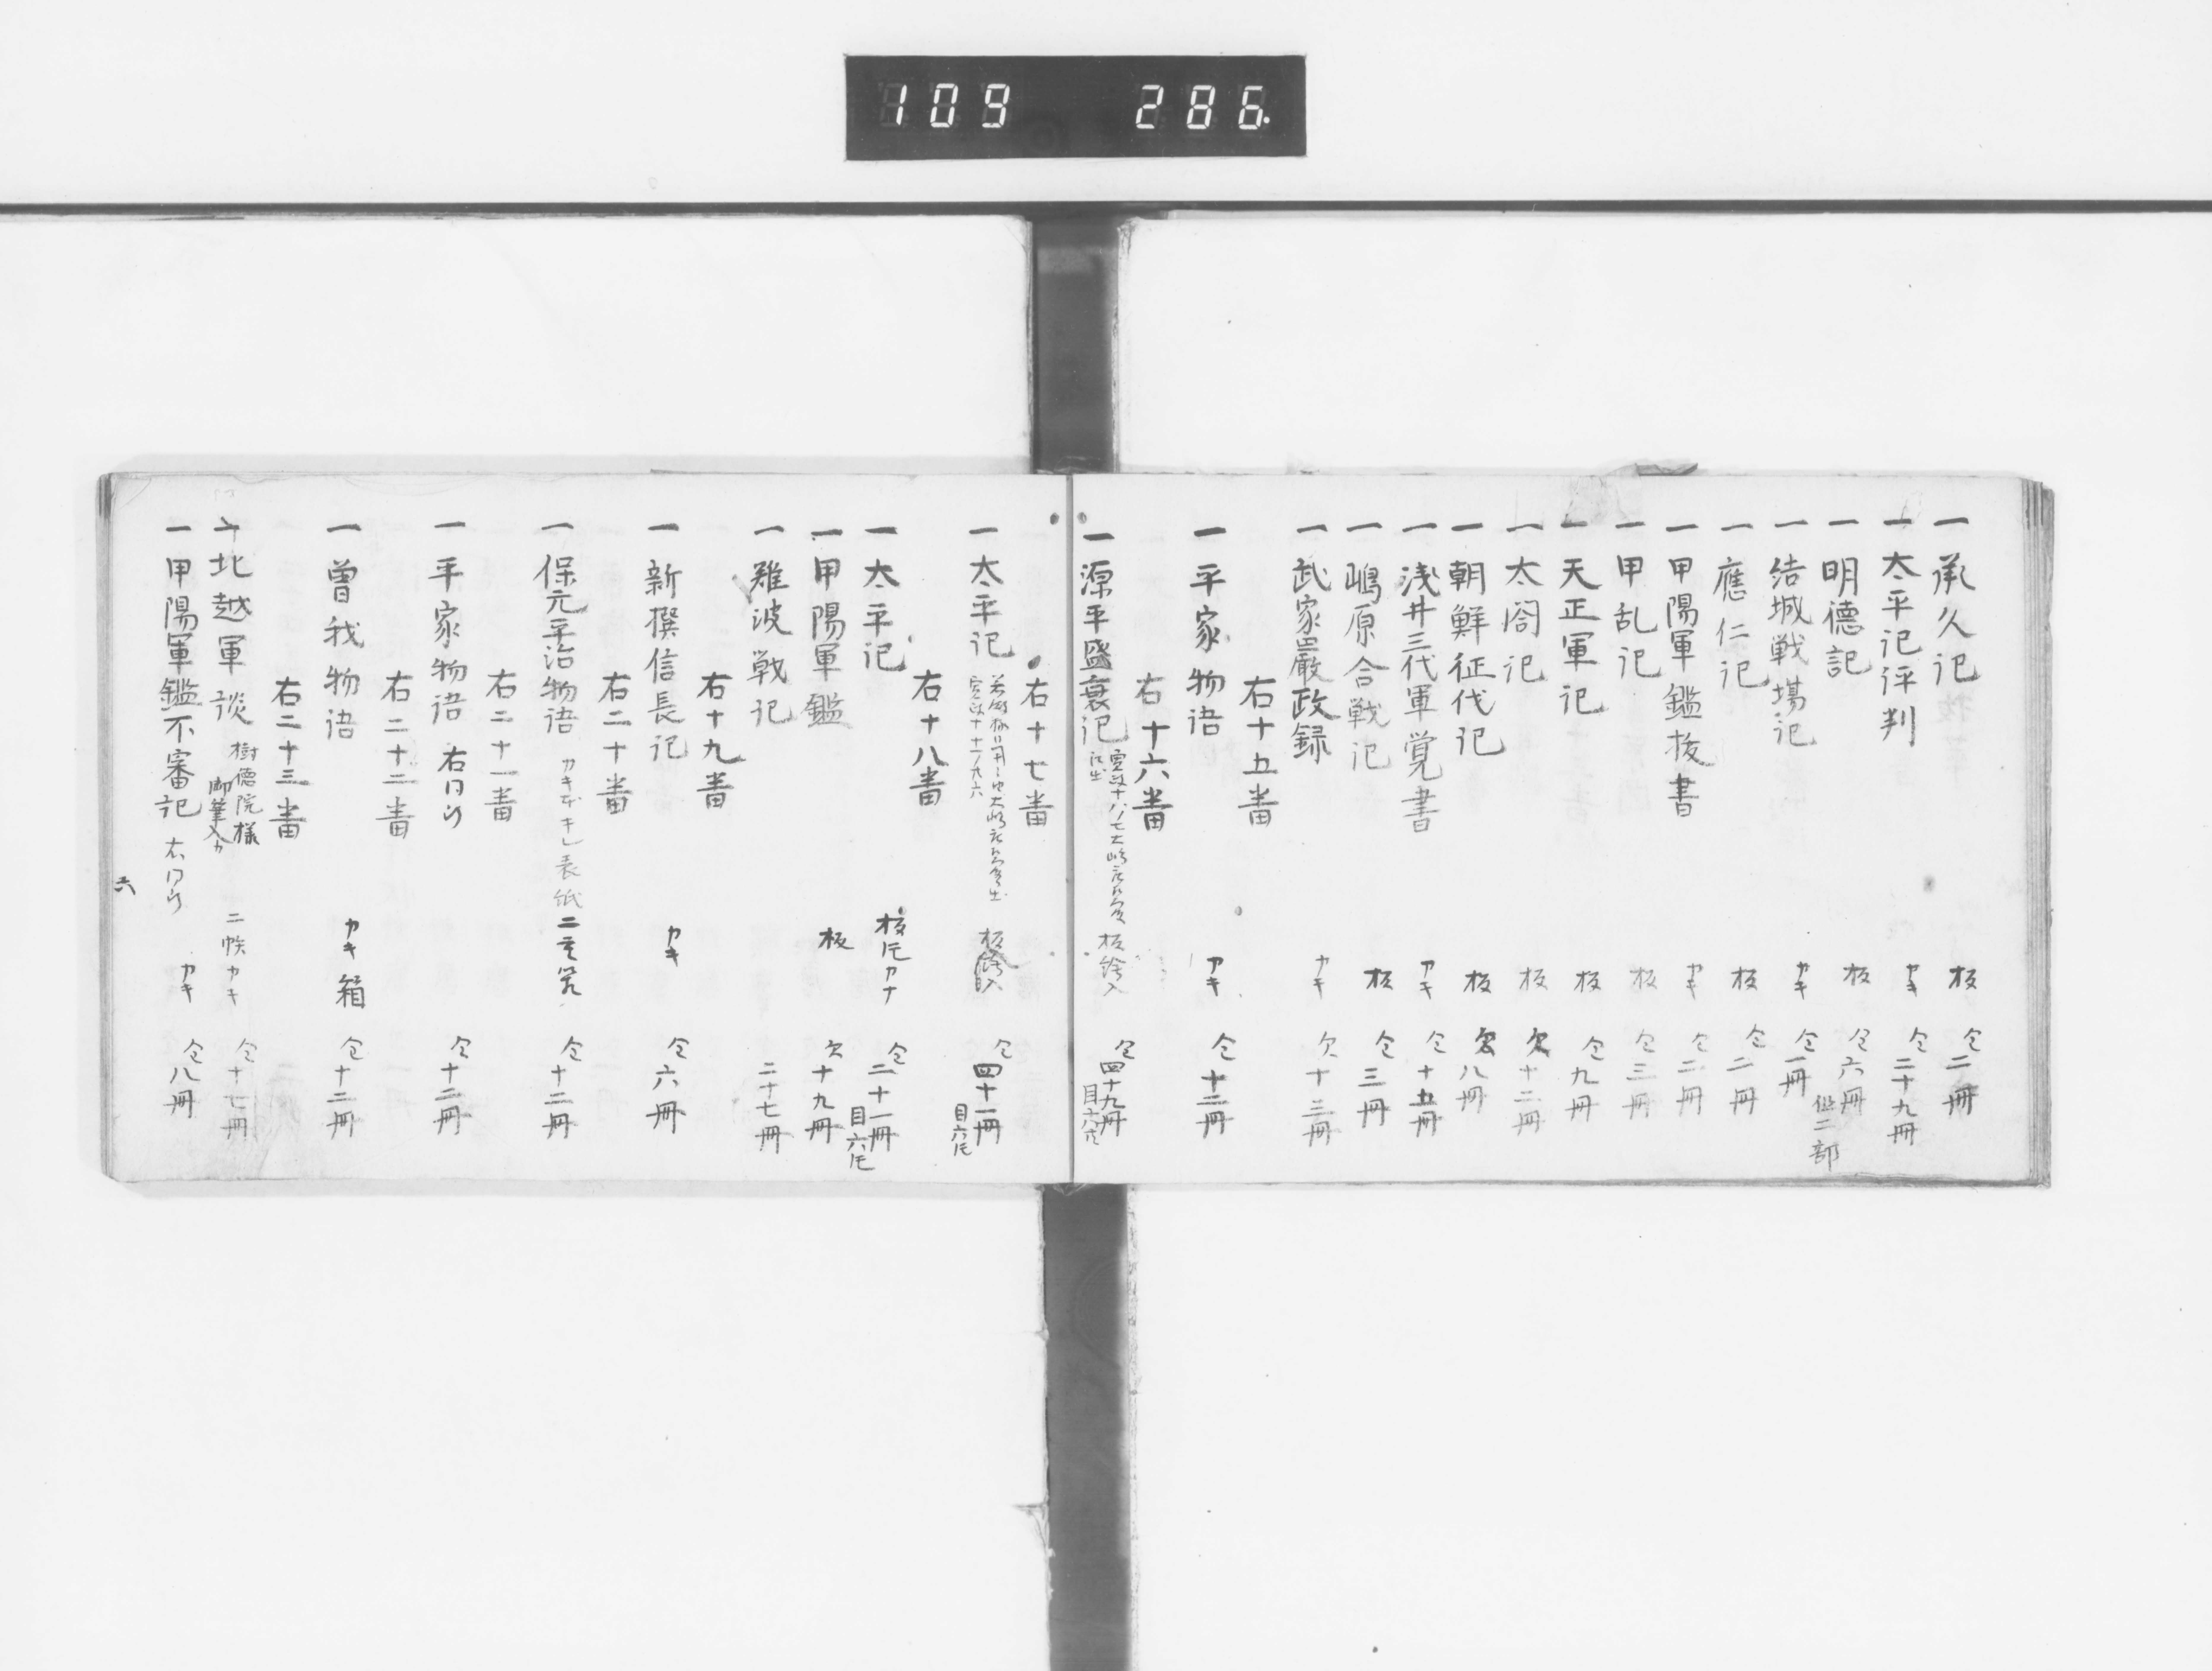 109 286.
一承久记 板 仝二冊
一太平记评判 カキ 仝二十九冊
一明德記 板 仝六冊 但二部
一结城戦場记 カキ 仝一冊
一應仁记 板 仝二冊
一甲陽軍鑑抜書 カキ 仝二冊
一甲乱记 板 仝三冊
一天正軍记 板 仝九冊
一太閤记 板 欠十二冊
一朝鮮征伐记 板 欠八冊
一浅井三代軍覚書 カキ 仝十五冊
一嶋原合戦记 板 仝三冊
一武家嚴政録 カキ 欠十三冊
右十五畨
一平家物语 カキ 仝十二冊
右十六畨
一源平盛衰记 板 绘入 仝四十九冊 目六共
右十七畨
一太平记 板 绘入 仝四十一冊 目六圧
右十八畨
一太平记 板 カナ 仝二十一冊 目六圧
一甲陽軍鑑 板 欠十九冊
一難波戦记 二十七冊
右十九畨
一新撰信長记 カキ 仝六冊
右二十畨
一保元平治物语 カキ 表紙 仝十二冊
右二十一畨
一平家物语 右同 仝十二冊
右二十二畨
一曽我物语 カキ 箱 仝十二冊
右二十三畨
一北越軍談 樹德院様 御筆入カ 二帙カキ 仝十七冊
一甲陽軍鑑不審记 右同 カキ 仝八冊
六